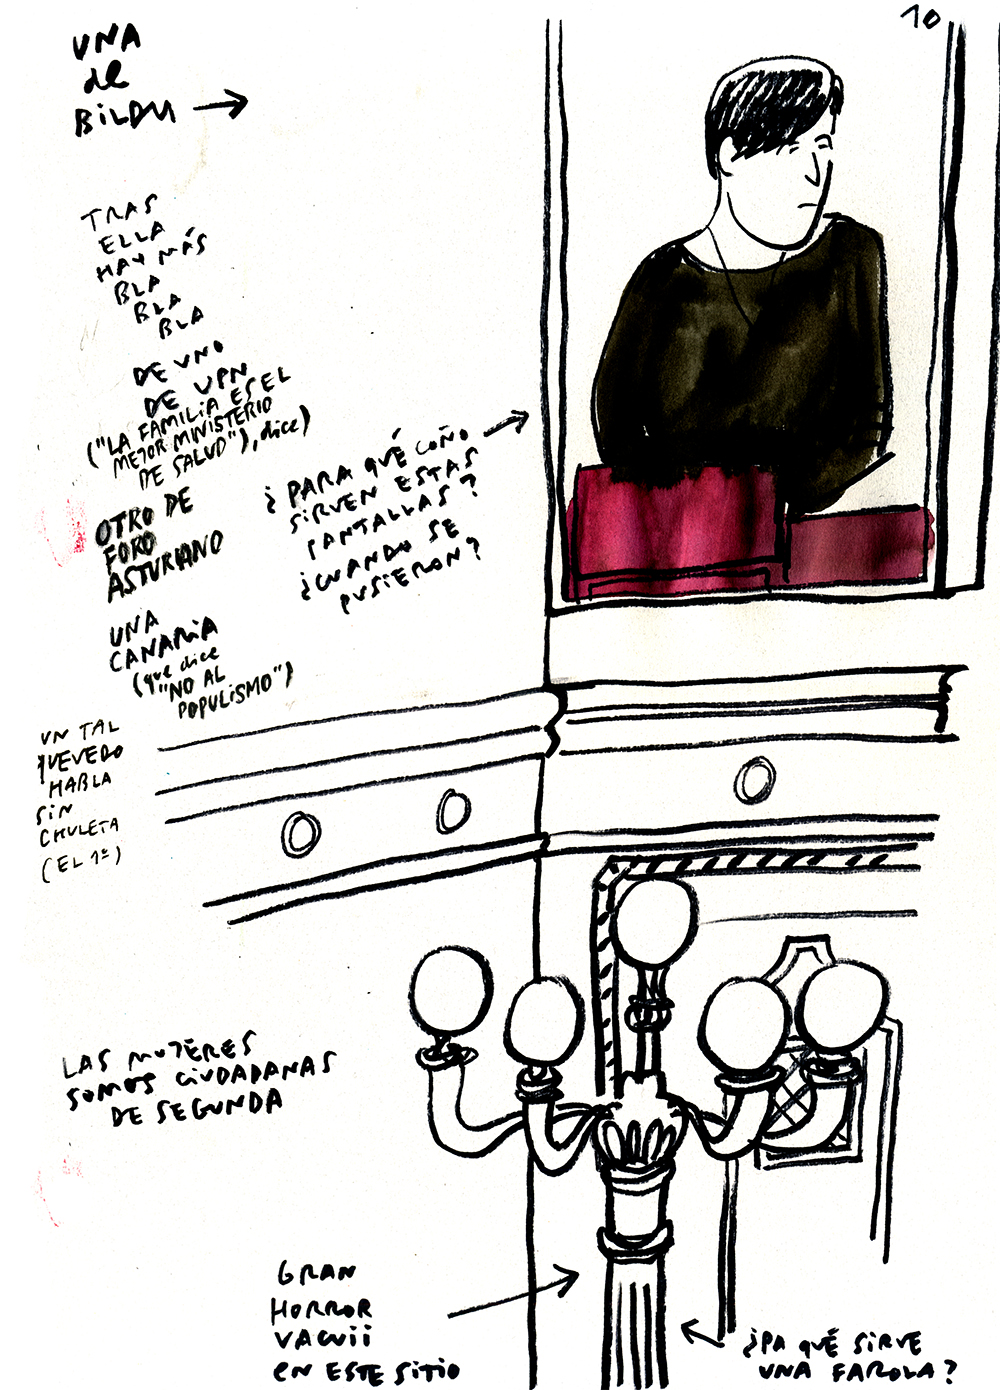 10
UNA
de
BILDU
TRAS
ELLA
HAY MÁS
BLA
BLA
BLA
DE UNO
DE UPN
("LA FAMILIA ES EL
MEJOR MINISTERIO
DE SALUD"), dice)
OTRO DE
FORO
ASTURIANO
¿PARA QUÉ COÑO
SIRVEN ESTAS
PANTALLAS?
¿CUANDO SE
PUSIERON?
UNA
CANARIA
(que dice
"NO AL
POPULISMO")
UN TAL
QUEVEDO
HABLA
SIN
CHULETA
(EL 1º)
LAS MUJERES
SOMOS CIUDADANAS
DE SEGUNDA
GRAN
HORROR
VACUii
EN ESTE SITIO
¿PA QUÉ SIRVE
UNA FAROLA?